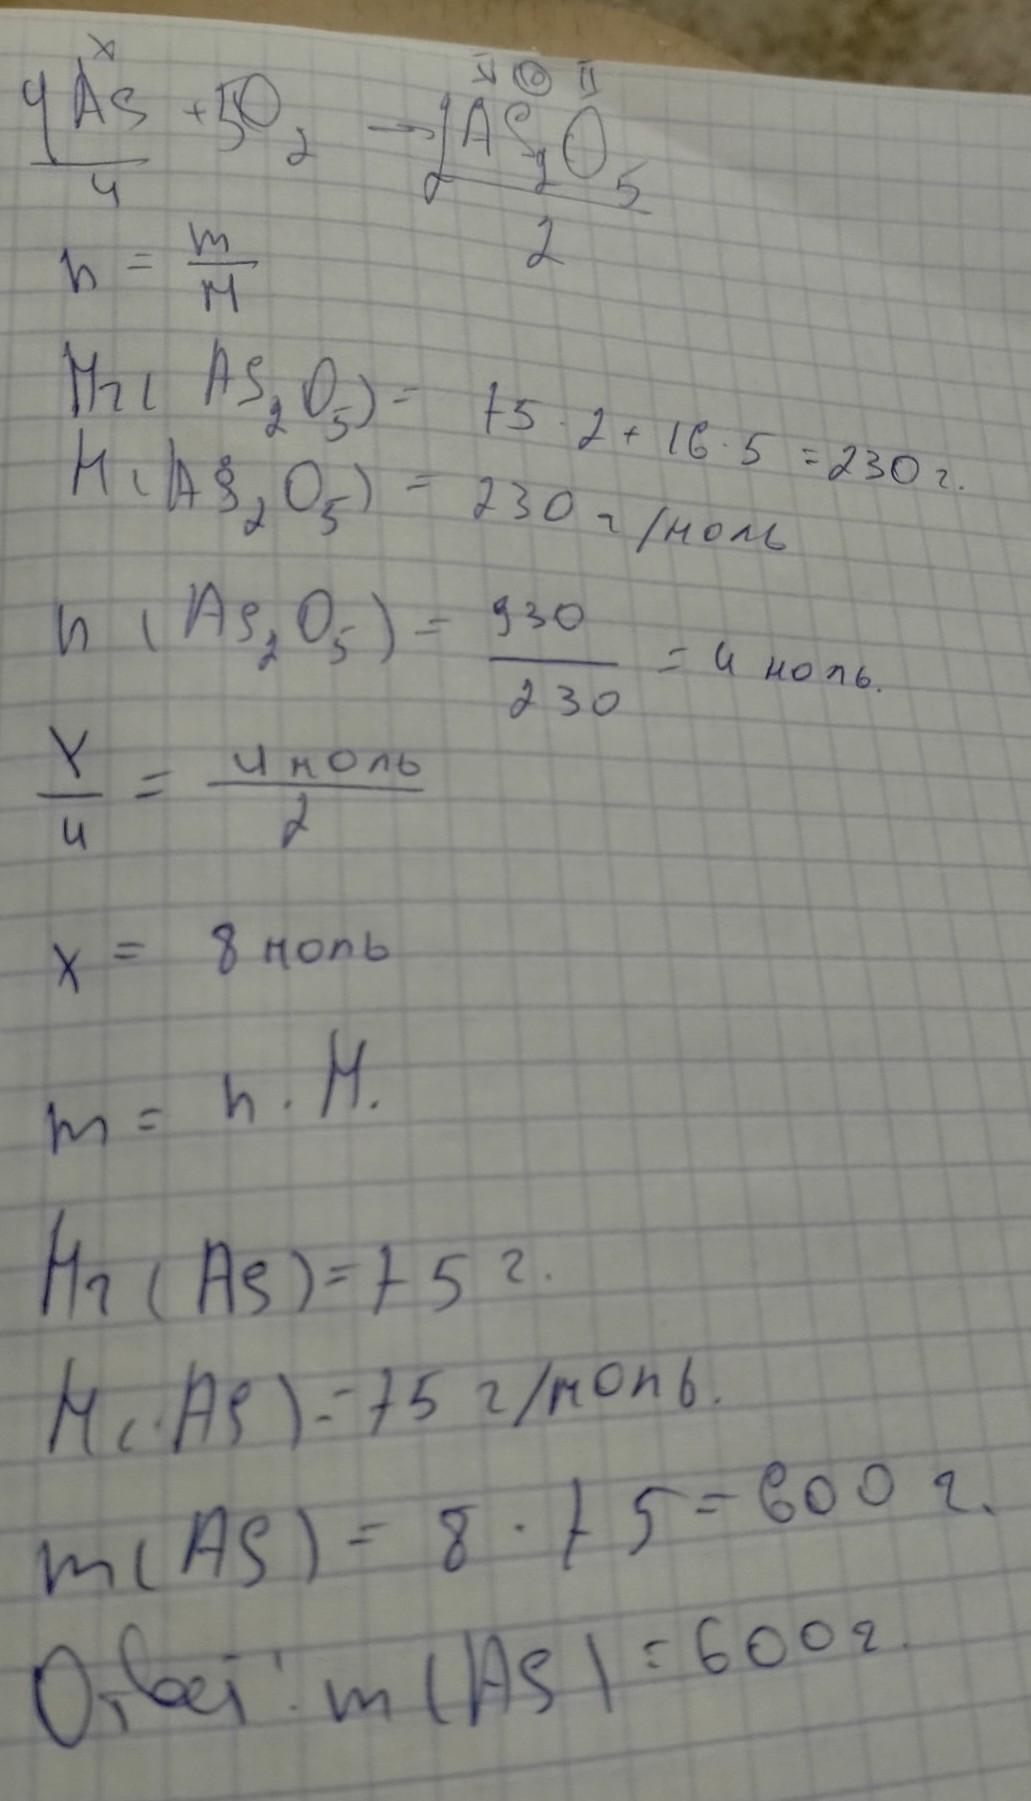 x V 10 II
4As + 5O2 → 2As2O5
4 2
n = m/M
Mr(As2O5) = 75·2+16·5=230г.
M(As2O5) = 230 г/моль
n(As2O5) = 930/230 = 4 моль.
x/4 = 4 моль/2
x = 8 моль
m = n · M.
Mr(As)=75 г.
M(As)=75 г/моль.
m(As) = 8 · 75 = 600 г.
Ответ: m(As) = 600г.